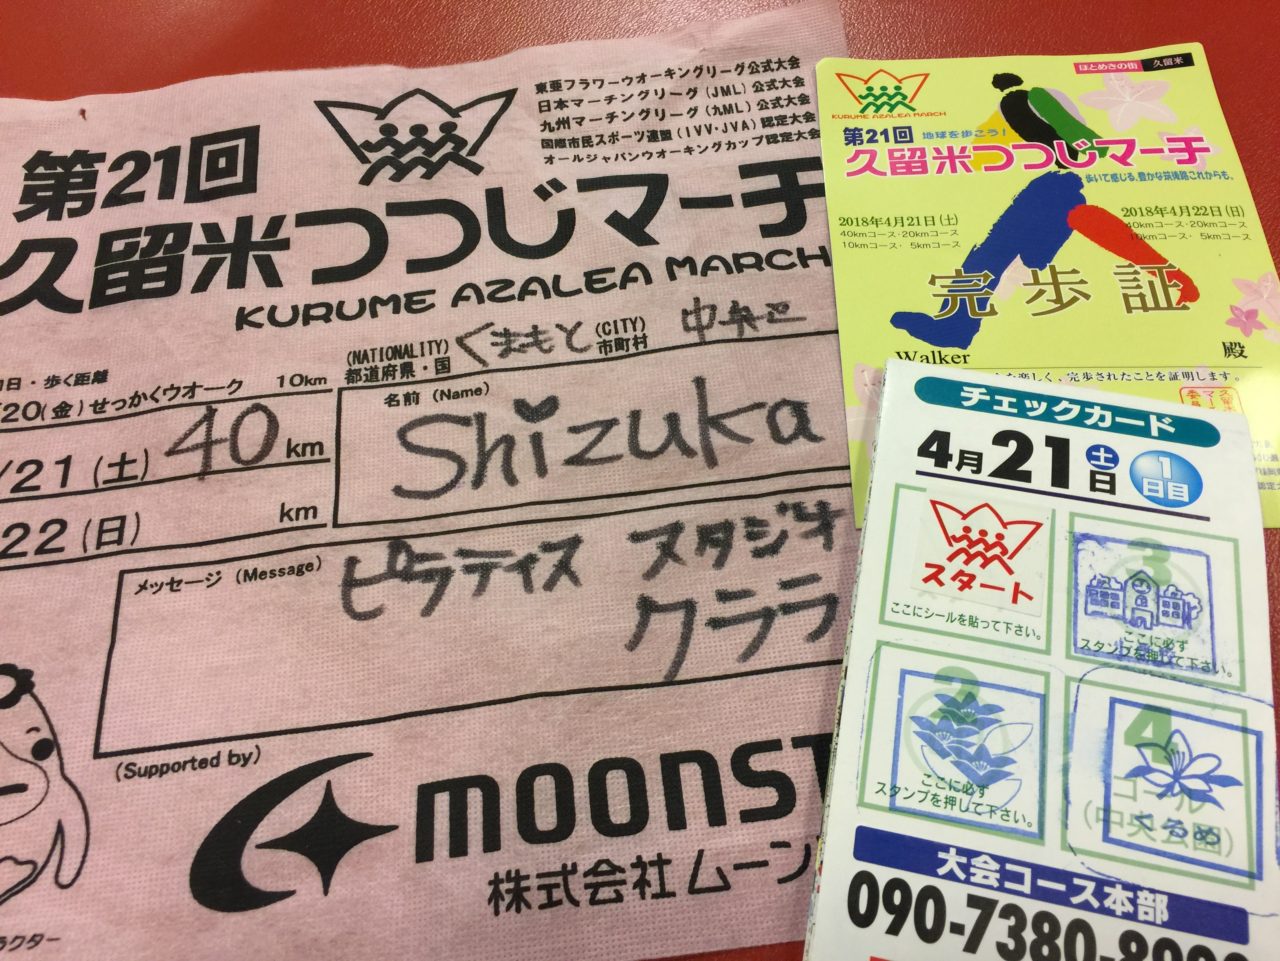 東亜フラワーウオーキングリーグ公式大会
日本マーチングリーグ(JML)公式大会
九州マーチングリーグ(九ML)公式大会
国際市民スポーツ連盟(IVV・JVA)認定大会
オールジャパンウオーキングカップ認定大会
第21回
久留米つつじマーチ
KURUME AZALEA MARCH
(NATIONALITY)
都道府県・国
くまもと
(CITY)
市町村
中央区
日・歩く距離
20(金)せっかくウオーク 10km
/21(土) 40 km
22(日) km
名前 (Name)
Shizuka
メッセージ (Message)
ピラティス スタジオ
クララ
(Supported by)
moonst
株式会社ムーン
ラクター
ほとめきの街 久留米
KURUME AZALEA MARCH
第21回 地球を歩こう!
久留米つつじマーチ
歩いて感じる、豊かな筑後路これからも。
2018年4月21日(土)
40kmコース・20kmコース
10kmコース・ 5kmコース
2018年4月22日(日)
40kmコース・20kmコース
10kmコース・ 5kmコース
完歩証
Walker 殿
を楽しく、完歩されたことを証明します。
チェックカード
4月21日 土 1日目
スタート
ここにシールを貼って下さい。
3
ここに必ず
スタンプを押して下さい。
2
ここに必ず
スタンプを押して下さい。
4
ゴール
(中央公園)
くるめ
大会コース本部
090-7380-8